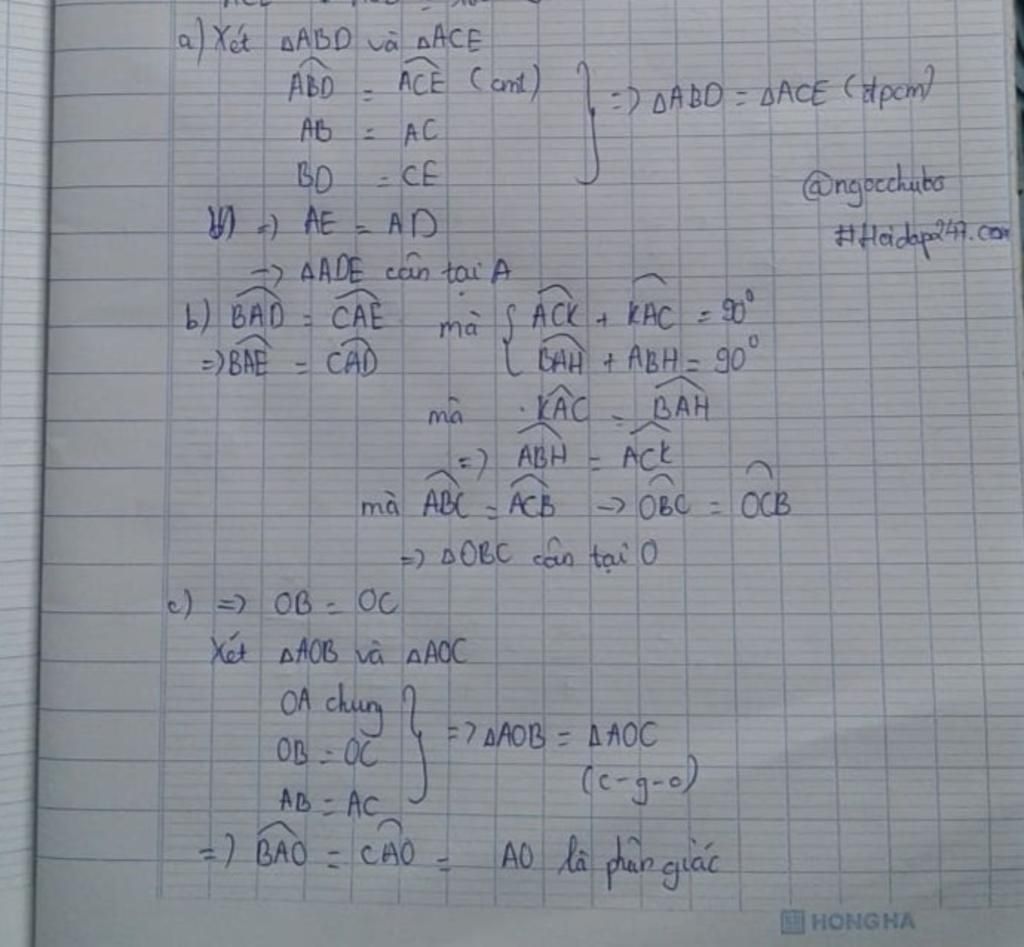 a) Xét ΔABD và ΔACE
ABD = ACE (cmt)
AB = AC
BD = CE
=> ΔABD = ΔACE (đpcm)
@ngocchubo
#Hoidap247.com
=> AE = AD
-> ΔADE cân tại A
b) BAD = CAE
=> BAE = CAD
mà { ACK + KAC = 90°
BAH + ABH = 90°
mà KAC = BAH
=> ABH = ACK
mà ABC = ACB -> OBC = OCB
=> ΔOBC cân tại O
c) => OB = OC
Xét ΔAOB và ΔAOC
OA chung
OB = OC
AB = AC
=> ΔAOB = ΔAOC
(c-g-c)
=> BAO = CAO = AO là phân giác
HONG HA